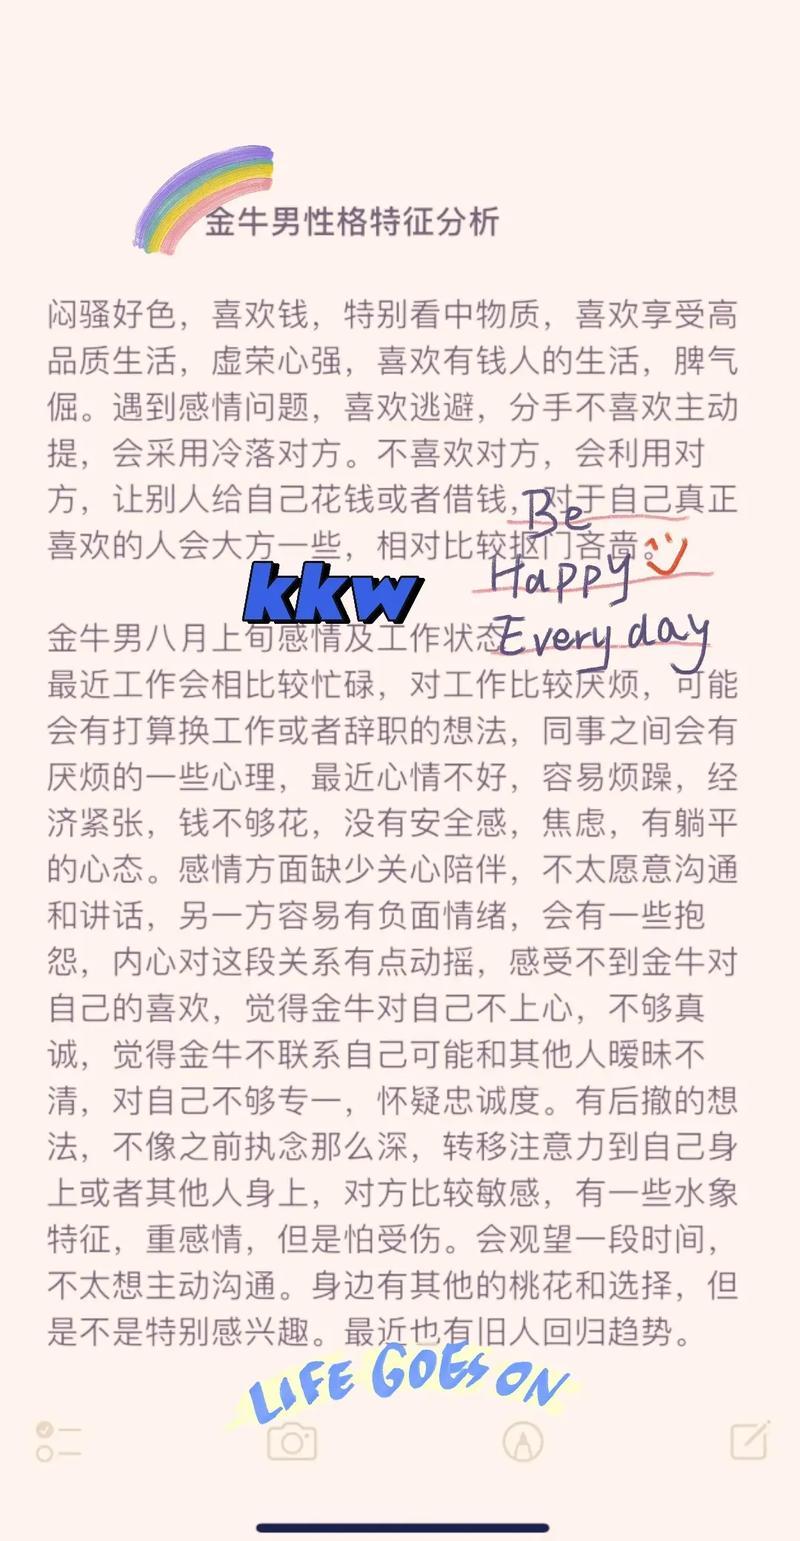 金牛男性格特征分析
闷骚好色，喜欢钱，特别看中物质，喜欢享受高
品质生活，虚荣心强，喜欢有钱人的生活，脾气
倔。遇到感情问题，喜欢逃避，分手不喜欢主动
提，会采用冷落对方。不喜欢对方，会利用对
方，让别人给自己花钱或者借钱，对于自己真正
Be
喜欢的人会大方一些，相对比较抠门吝啬。
Happy
kkw
金牛男八月上旬感情及工作状态
Every day
最近工作会相比较忙碌，对工作比较厌烦，可能
会有打算换工作或者辞职的想法，同事之间会有
厌烦的一些心理，最近心情不好，容易烦躁，经
济紧张，钱不够花，没有安全感，焦虑，有躺平
的心态。感情方面缺少关心陪伴，不太愿意沟通
和讲话，另一方容易有负面情绪，会有一些抱
怨，内心对这段关系有点动摇，感受不到金牛对
自己的喜欢，觉得金牛对自己不上心，不够真
诚，觉得金牛不联系自己可能和其他人暧昧不
清，对自己不够专一，怀疑忠诚度。有后撤的想
法，不像之前执念那么深，转移注意力到自己身
上或者其他人身上，对方比较敏感，有一些水象
特征，重感情，但是怕受伤。会观望一段时间，
不太想主动沟通。身边有其他的桃花和选择，但
是不是特别感兴趣。最近也有旧人回归趋势。
LIFE GOES ON